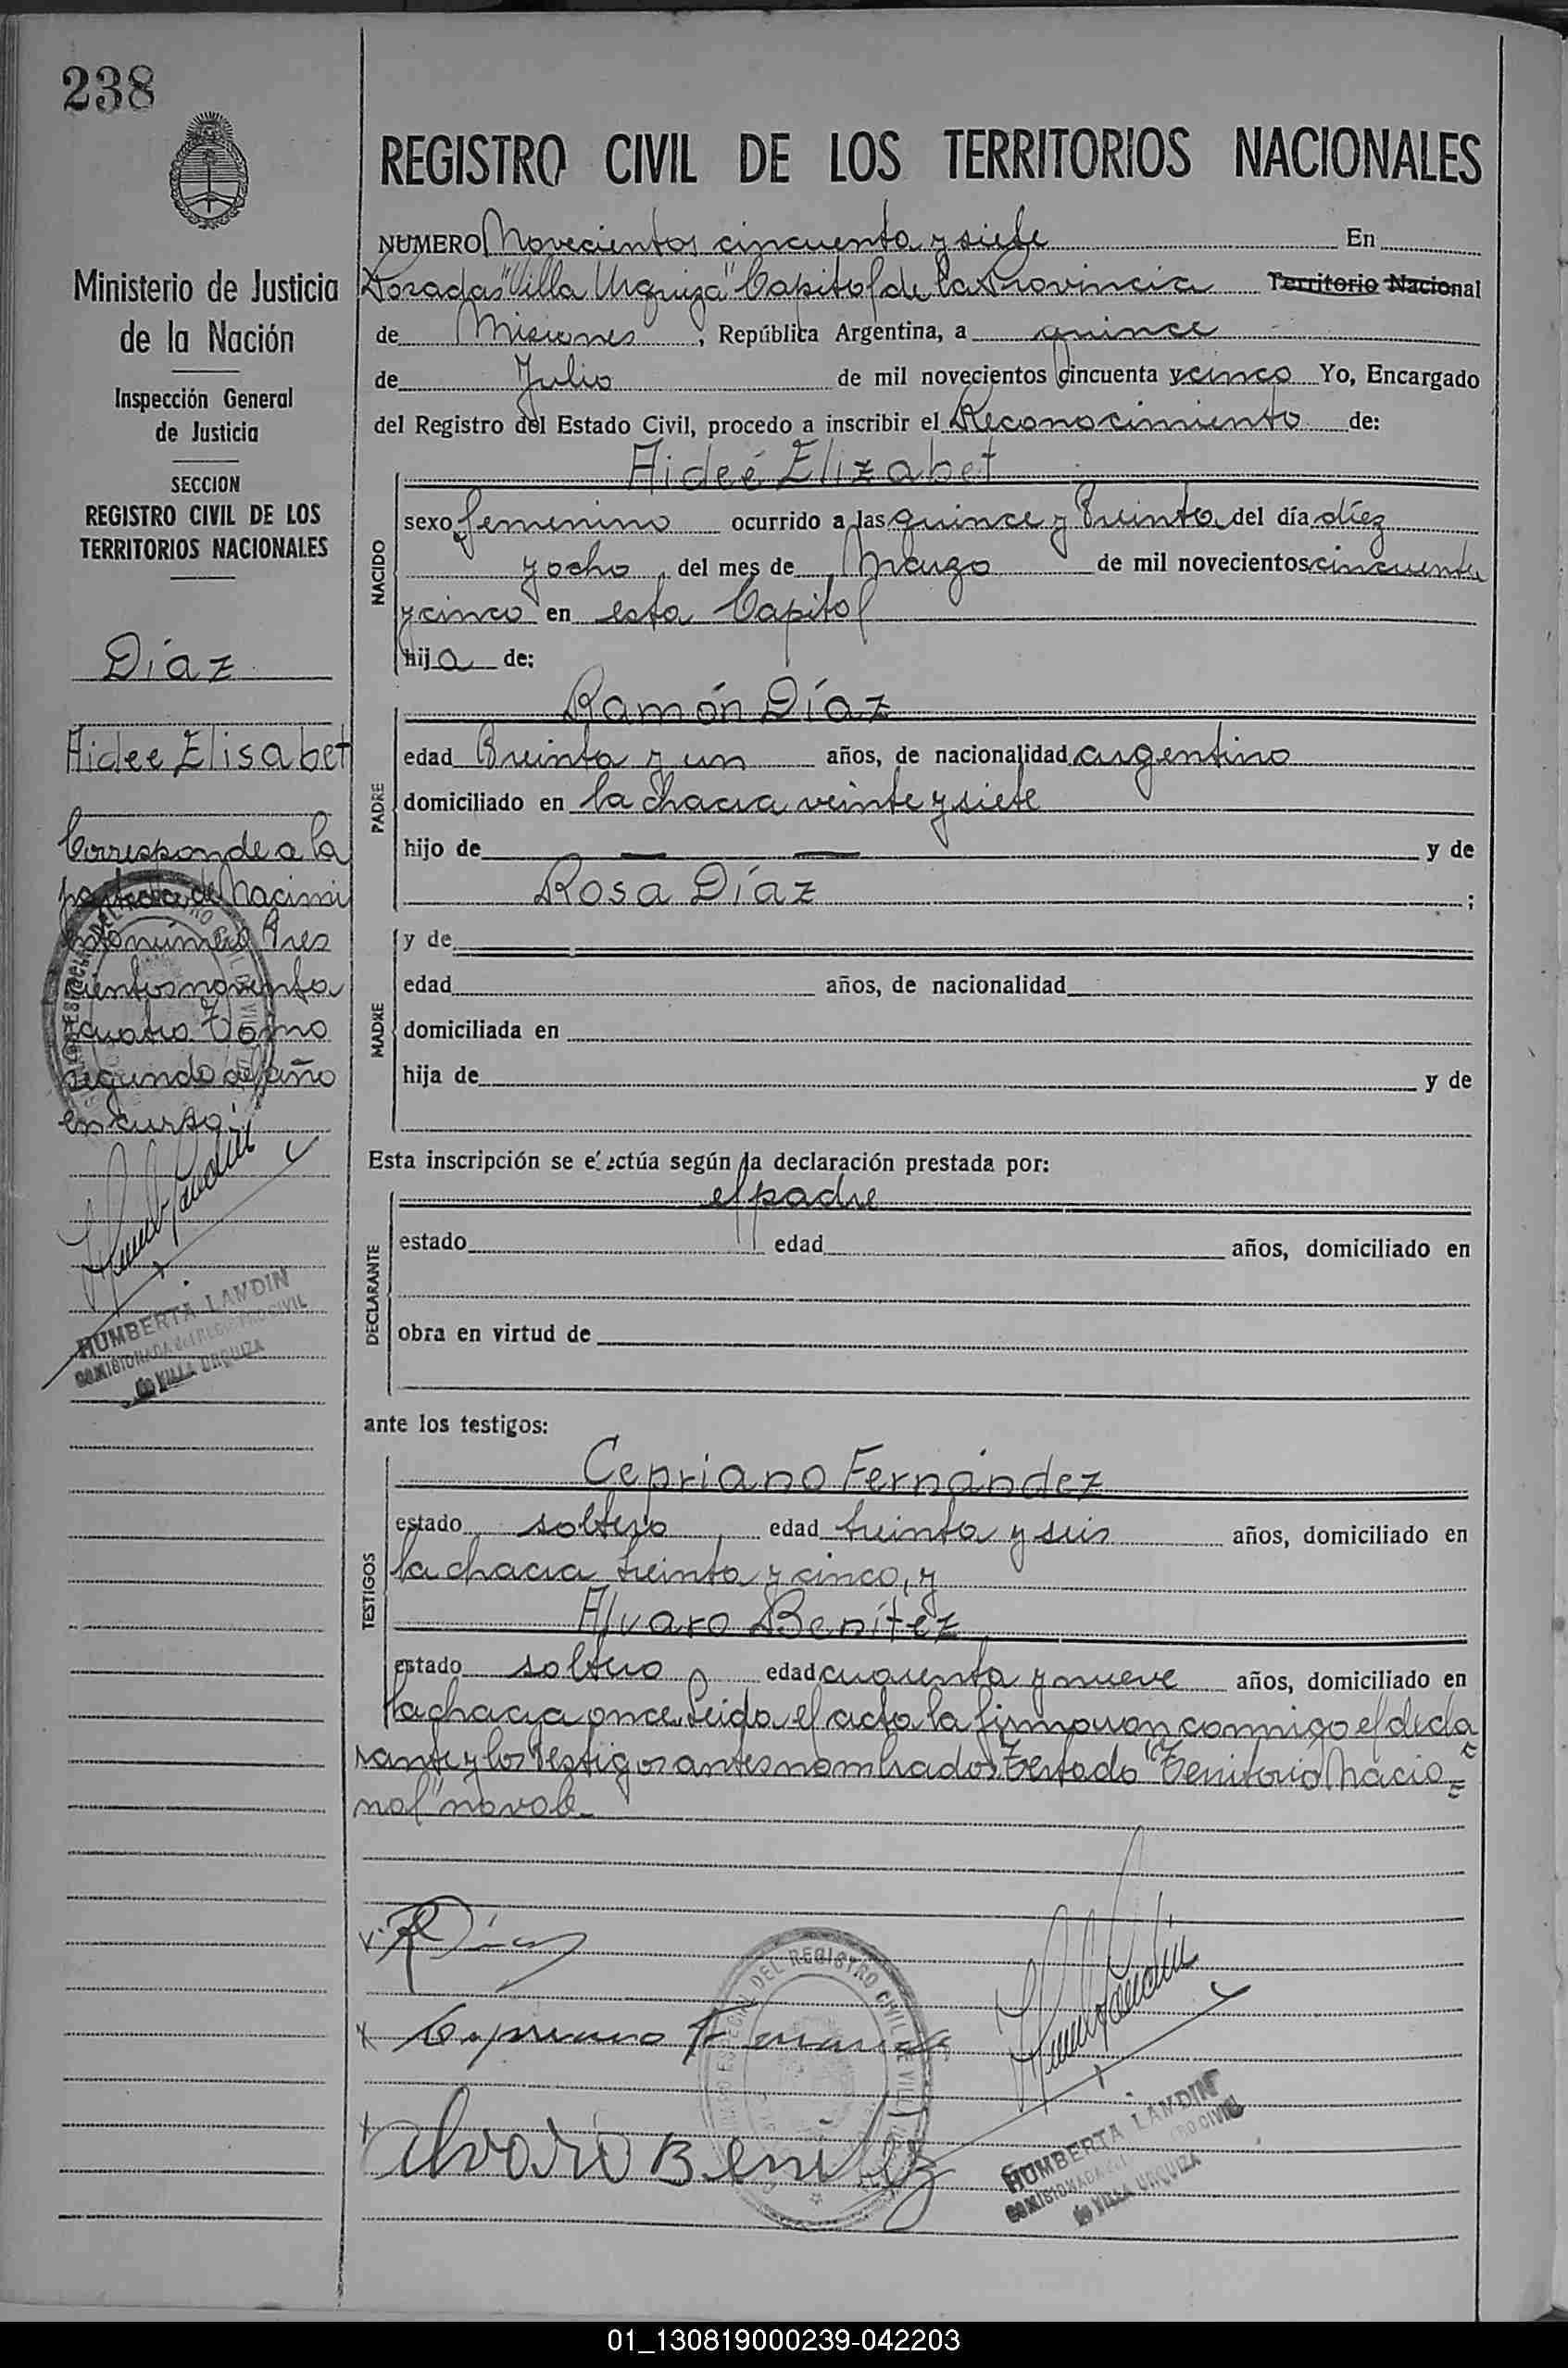 238
REGISTRO CIVIL DE LOS TERRITORIOS NACIONALES
Ministerio de Justicia
de la Nación
Inspección General
de Justicia
SECCION
REGISTRO CIVIL DE LOS
TERRITORIOS NACIONALES
Díaz
Aidee Elisabet
Corresponde a la
partida de Nacimi
ento número Tres
cientos noventa
y cuatro Tomo
segundo del año
en curso.
HUMBERTA LANDIN
COMISIONADA del REGISTRO CIVIL
de VILLA URQUIZA
NUMERO Novecientos cincuenta y siete En
Posadas "Villa Urquiza" Capital de la Provincia Territorio Nacional
de Misiones, República Argentina, a quince
de Julio de mil novecientos cincuenta y cinco Yo, Encargado
del Registro del Estado Civil, procedo a inscribir el Reconocimiento de:
Aideé Elizabet
NACIDO
sexo femenino ocurrido a las quince y Treinta del día diez
y ocho, del mes de Marzo de mil novecientos cincuenta
y cinco en esta Capital
hija de:
Ramón Díaz
PADRE
edad Treinta y un años, de nacionalidad argentino
domiciliado en la chacra veinte y siete
hijo de — — y de
Rosa Díaz ;
MADRE
y de
edad años, de nacionalidad
domiciliada en
hija de y de
Esta inscripción se efectúa según la declaración prestada por:
el padre
DECLARANTE
estado edad años, domiciliado en
obra en virtud de
ante los testigos:
Cepriano Fernández
TESTIGOS
estado soltero edad treinta y seis años, domiciliado en
la chacra treinta y cinco, y
Alvaro Benítez
estado soltero edad cuarenta y nueve años, domiciliado en
la chacra once. Leida el acta la firmaron conmigo el decla
rante y los Testigos antes nombrados Testado "Territorio Nacio=
nal" no vale.
R Díaz
DEL REGISTRO CIVIL DE VILLA
Cepriano Fernandez
alvaro Benitez
HUMBERTA LANDIN
COMISIONADA del REGISTRO CIVIL
de VILLA URQUIZA
01_130819000239-042203